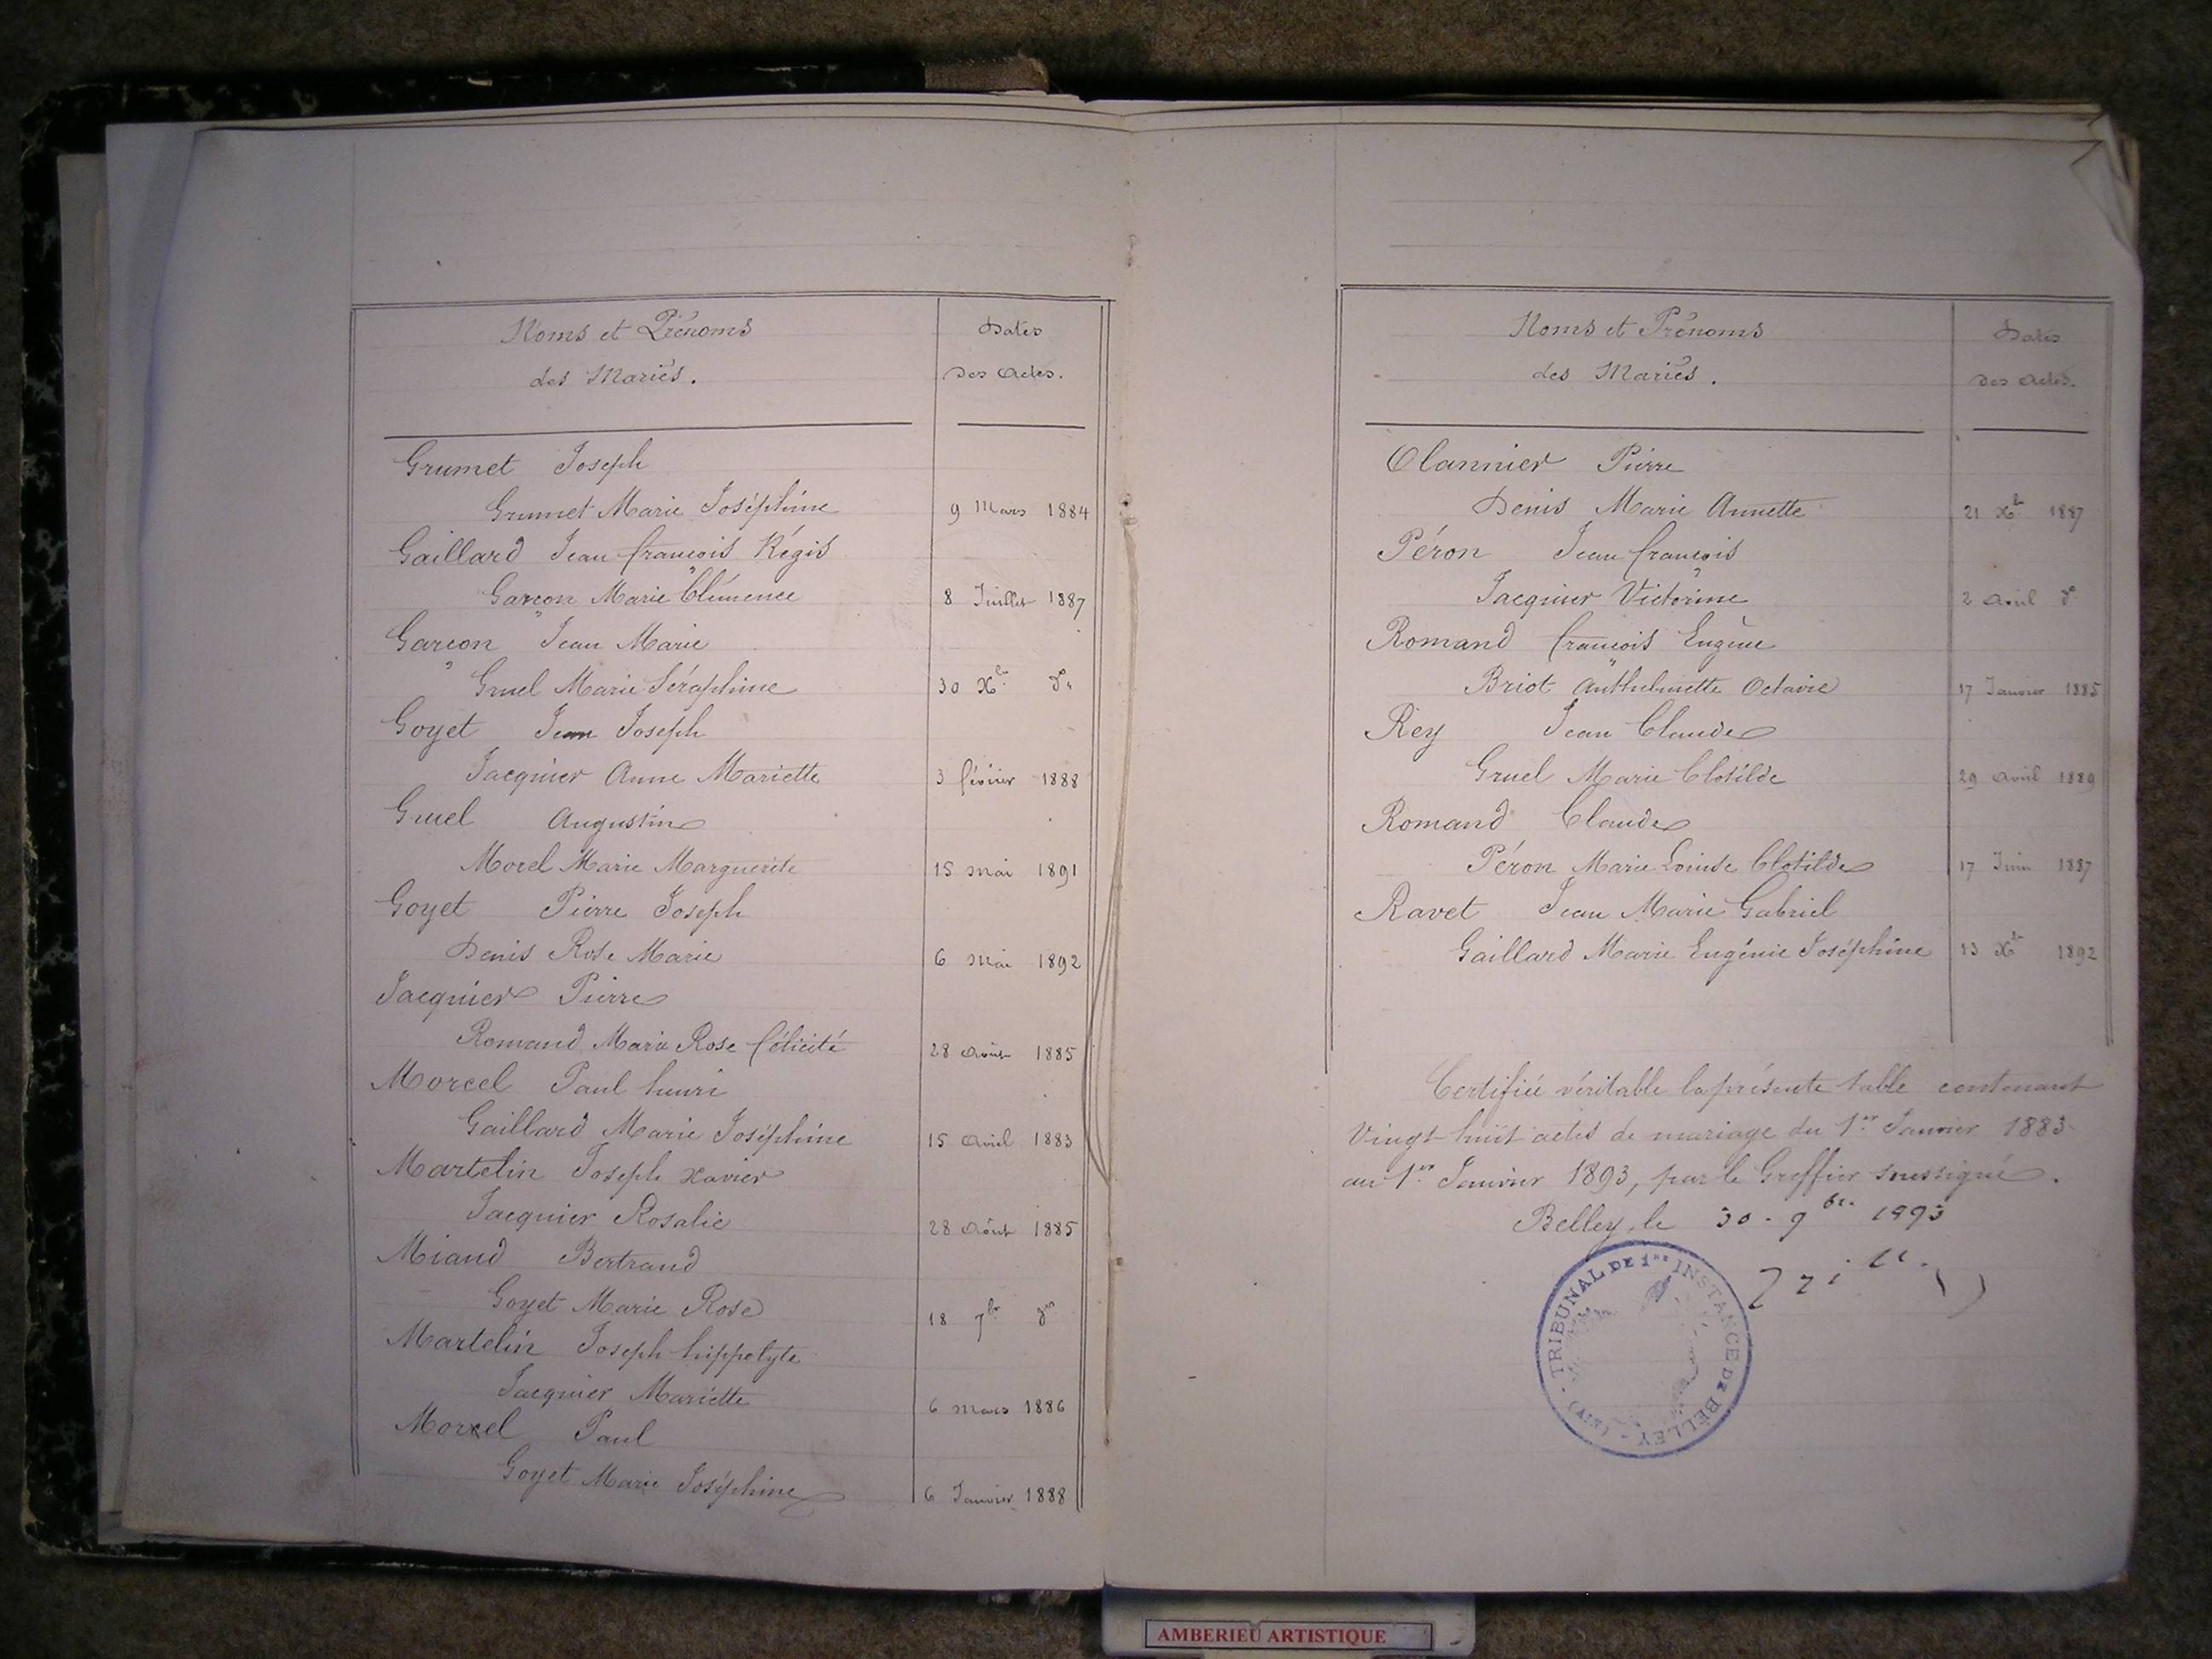 Noms et Prénoms
des Mariés.
Dates
des Actes.
Grumet Joseph
Grumet Marie Joséphine 9 Mars 1884
Gaillard Jean François Régis
Garçon Marie Clémence 8 Juillet 1887
Garçon Jean Marie
Gruel Marie Séraphine 30 Xbre do
Goyet Jean Joseph
Jacquier Anne Mariette 3 février 1888
Gruel Augustin
Morel Marie Marguerite 15 mai 1891
Goyet Pierre Joseph
Denis Rose Marie 6 Mai 1892
Jacquier Pierre
Romand Marie Rose félicité 28 Août 1885
Morcel Paul henri
Gaillard Marie Joséphine 15 avril 1883
Martelin Joseph Xavier
Jacquier Rosalie 28 Août 1885
Miand Bertrand
Goyet Marie Rose 18 7bre do
Martelin Joseph hippolyte
Jacquier Mariette 6 Mars 1886
Morcel Paul
Goyet Marie Joséphine 6 Janvier 1888
Noms et Prénoms
des Mariés.
Dates
des Actes.
Olannier Pierre
Denis Marie Annette 21 Xbre 1887
Péron Jean françois
Jacquier Victorine 2 avril do
Romand françois Eugène
Briot Anthelmette Octavie 17 Janvier 1885
Rey Jean Claude
Gruel Marie Clotilde 29 avril 1889
Romand Claude
Péron Marie Louise Clotilde 17 Juin 1887
Ravet Jean Marie Gabriel
Gaillard Marie Eugénie Joséphine 13 Xbre 1892
Certifiée véritable la présente table contenant
Vingt-huit actes de mariage du 1er Janvier 1883
au 1er Janvier 1893, par le Greffier soussigné.
Belley, le 30 - 9bre 1893
TRIBUNAL DE 1RE INSTANCE DE BELLEY - (AIN)
AMBERIEU ARTISTIQUE